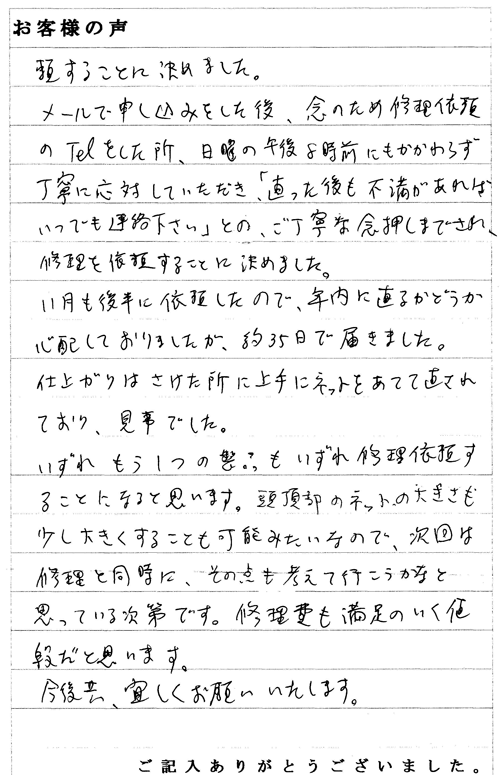 お客様の声
頼することに決めました。
メールで申し込みをした後、念のため修理依頼
のTelをした所、日曜の午後8時前にもかかわらず
丁寧に応対していただき、「直った後も不満があれば
いつでも連絡下さい」との、ご丁寧な念押しまでされ、
修理を依頼することに決めました。
11月も後半に依頼したので、年内に直るかどうか
心配しておりましたが、約35日で届きました。
仕上がりはさけた所に上手にネットをあてて直され
ており、見事でした。
いずれもう1つの もいずれ修理依頼す
ることになると思います。頭頂部のネットの大きさも
少し大きくすることも可能みたいなので、次回は
修理と同時に、その点も考えて行こうかなと
思っている次第です。修理費も満足のいく値
段だと思います。
今後共、宜しくお願いいたします。
ご記入ありがとうございました。